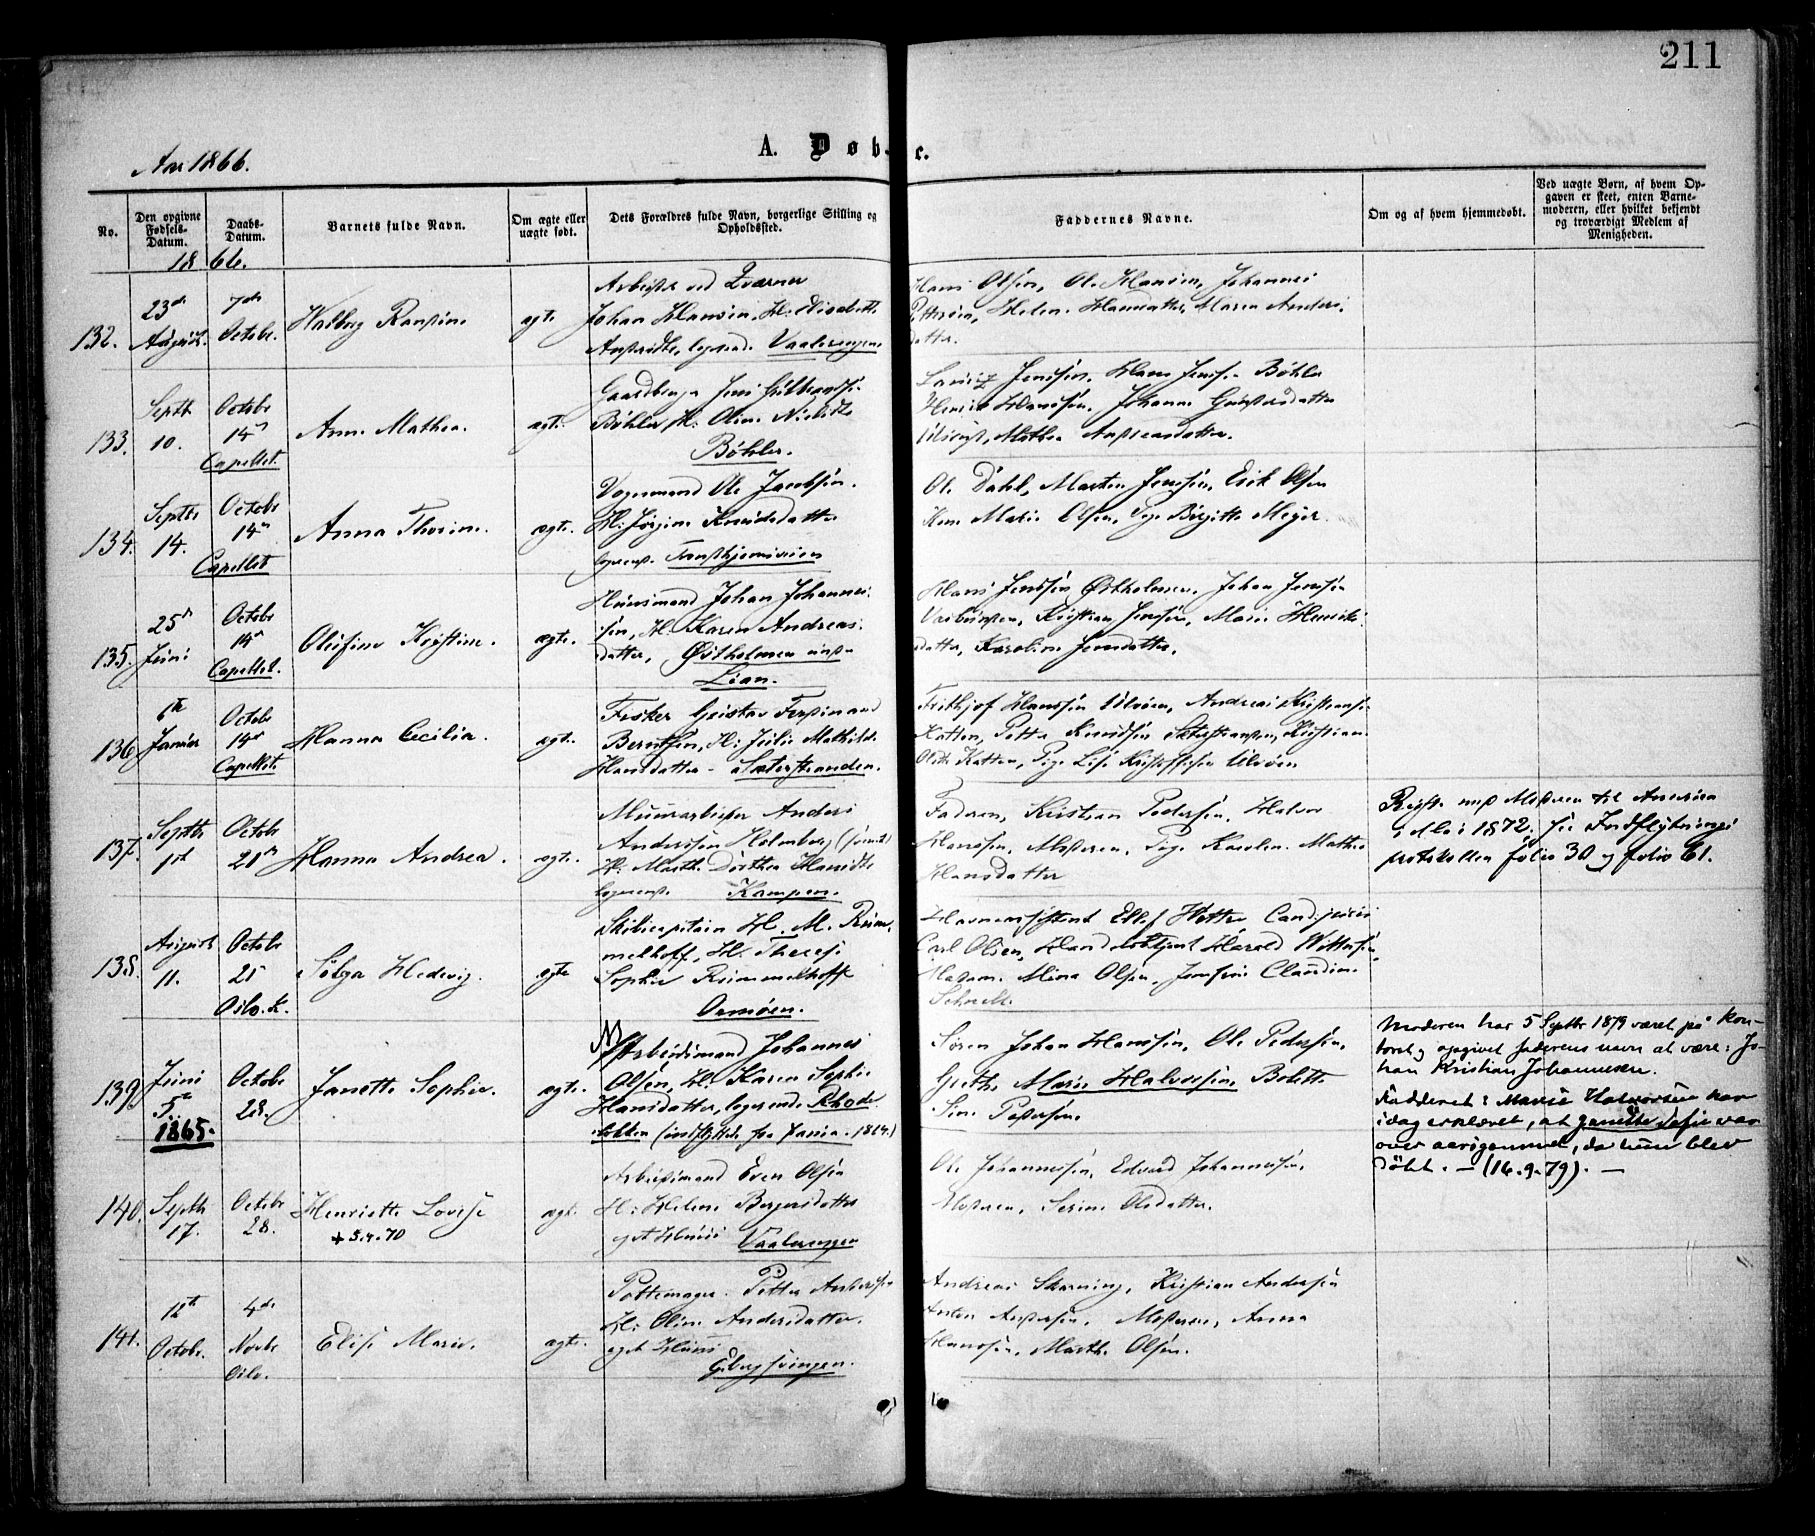 211
A. Døbte.
Aar 1866.
No.
Den opgivne
Fødsels-
Datum.
Daabs-
Datum.
Barnets fulde Navn.
Om ægte eller
uægte født.
Dets Forældres fulde Navn, borgerlige Stilling og
Opholdssted.
Faddernes Navne.
Om og af hvem hjemmedøbt.
Ved uægte Børn, af hvem Op-
gaven er skeet, enten Barne-
moderen, eller hvilket bekjendt
og troværdigt Medlem af
Menigheden.
1866.
132.
23de
August.
7de
Octobr.
ægte
Johan Hansen, H: Elisabeth
Vaalerengen
Hans Olsen, Ole Hansen, Johannes
Pettersen, Helene Maren Anders-
datter.
133.
Septb
10.
Octobr
14de
Capellet.
Anne Mathea.
ægte.
Bøhler, H: Oline Nielsdtr
Bøhler.
Jenssen, Hans Bøhler
Henrik Hanssen, Johanne
Mathea
134.
Septbr
14.
Octobr
14de
Capellet
Anna Thorine.
ægte.
Vognmand Ole Jacobsen.
H: Jørgine Knudsdatter
Ole Dahl, Morten Jenssen, Erik Olsen
Kone Marie Olsen, Pige Birgitte Meyer.
135.
25de
Juni
Octobr
14de
Capellet.
Olufine Kristine.
ægte.
Huusmand Johan Johannes-
sen, H: Karen Andreas-
datter, Østholmen under
Lian.
Hans Jenssen Østholmen, Johan Jenssen
Kristian Jenssen, Marie Henriks-
datter, Karoline Jensdatter.
136.
6te
Januar
Octobr
14de
Capellet
Hanna Cecilia.
ægte.
Fisker Gustav Ferdinand
Berntsen, H: Julie Mathilde
Hansdatter - Sæterstranden.
Frithjof Hanssen Ulvøen, Andreas Kristians.
Katten, Petter Knudsen Kristian
Katten, Pige Lise Ulvøen
137.
Septbr
1st
Octobr
21de
Hanna Andrea.
ægte.
Muurarbeider Anders
Anderssen Holmberg (svensk)
H: Marthe Dorthea Hansdtr
logerende Kampen.
Faderen, Kristian Pedersen, Halvor
Hanssen, Moderen, Pige Karoline Mathea
Hansdatter
Reiste med Moderen til Amerika
i Mai 1872, se Indflytnings
protokollen folio 30 og folio 61.
138.
August
11.
Octobr
21
Oslo K.
Solga Hedevig.
ægte
Skibscapitain H. M. Rum-
melhoff, H: Therese
Sophie Rummelhoff
Ormøen.
Havneassistent Ellef Cand. juris
Carl Olsen, Harald
Madam Mina Olsen, Jomfru Claudine
139.
Juni
5te
1865.
Octobr
28.
Janette Sophie.
ægte.
Arbeidsmand Johannes
Olsen, H: Karen Sophie
Hansdatter, logerende Rhode-
løkken (indflyttede fra Januar 1864.)
Søren Johan Hanssen, Ole Pedersen.
Marie Halvorsen Bolette
Sine Pedersen.
Moderen har 5 Septbr 1879 været på kon-
toret og opgivet faderens navn at være: Jo-
han Kristian Johannesen.
Fadderet: Marie Halvorsen har
idag erklæret, at Janette Sofie var
over aarsgammel, da hun blev
døbt. - (16.9.79). -
140.
Septb
17.
Octobr
28.
Henriette Lovise
+ 5.4.70
ægte.
Arbeidsmand Even Olsen
H: Helene Bergersdatter
eget Huus Vaalerengen
Ole Johannessen, Edvard Johannessen,
Moderen, Serine Olsdatter.
141.
12te
Octobr.
4de
Novbr
Oslo.
Elise Marie.
ægte.
Pottemager Petter Anderssen
H: Oline Andersdatter.
eget Huus
Gebergsvingen.
Andreas Skarning, Kristian Andersen
Anton Moderen, Anna
Hanssen, Marthe Olsen.